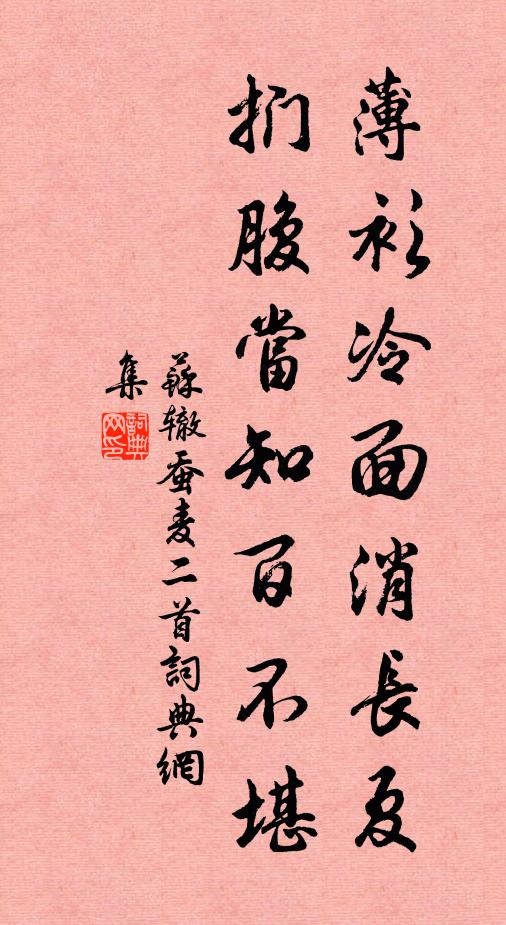 薄衫冷面消長夏
捫腹當知百不堪
蘇辙蚕麦二首詞典網
集
詞典
网印